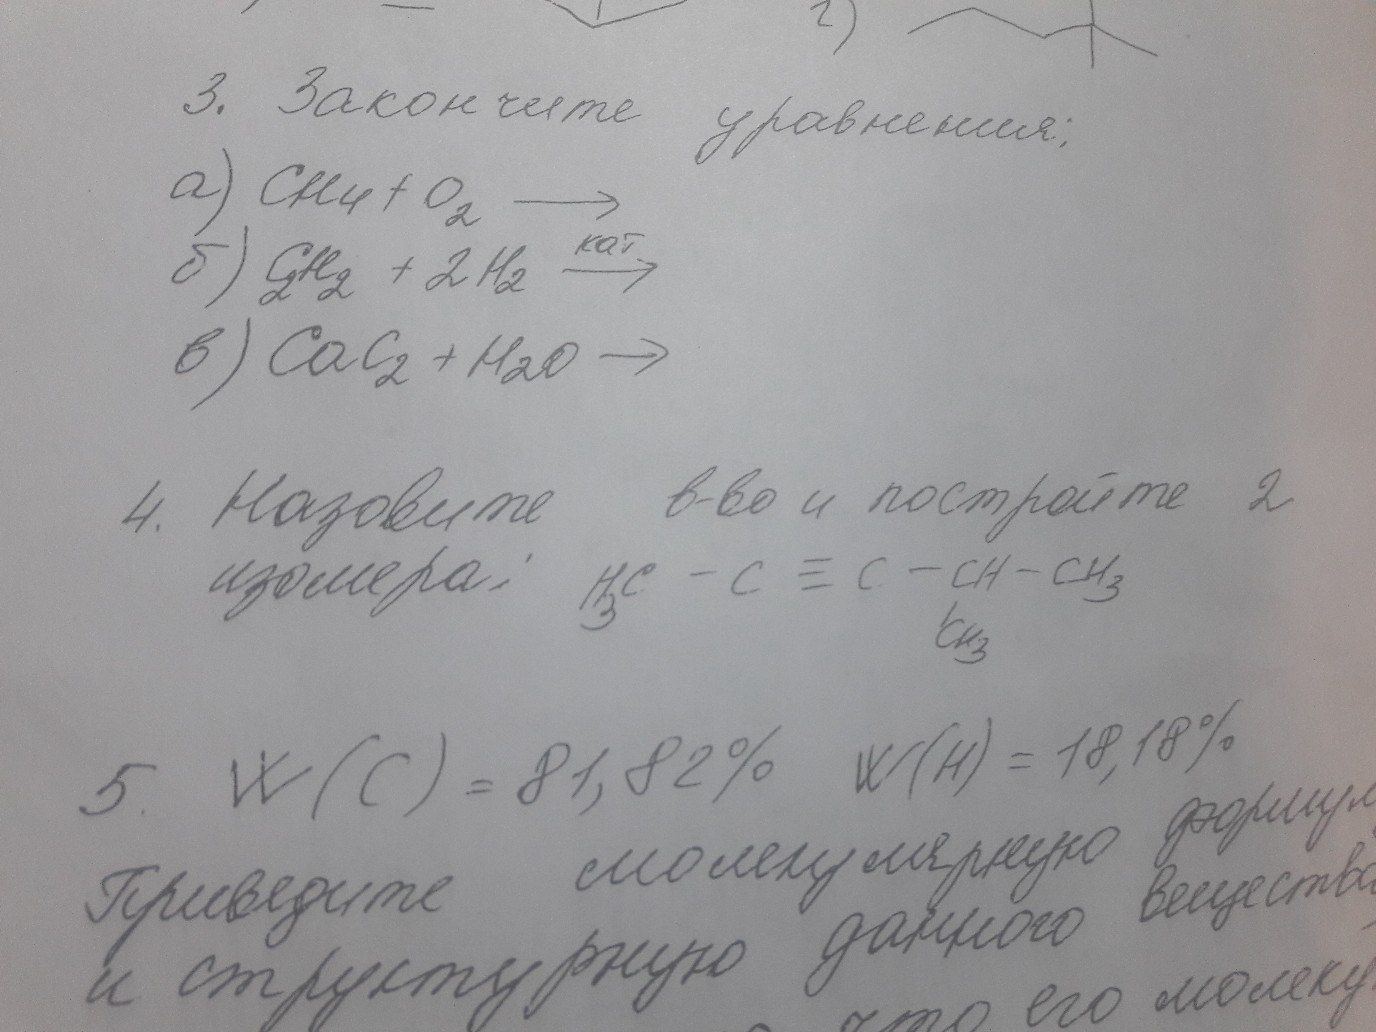 2)
3. Закончите уравнения:
а) CH4 + O2 →
б) C2H2 + 2H2 кат →
в) CaC2 + H2O →
4. Назовите в-во и постройте 2
изомера: H3C - C ≡ C - CH - CH3
CH3
5. W(C) = 81,82% W(H) = 18,18%
Приведите молекулярную формул
и структурную данного вещества
что его молеку